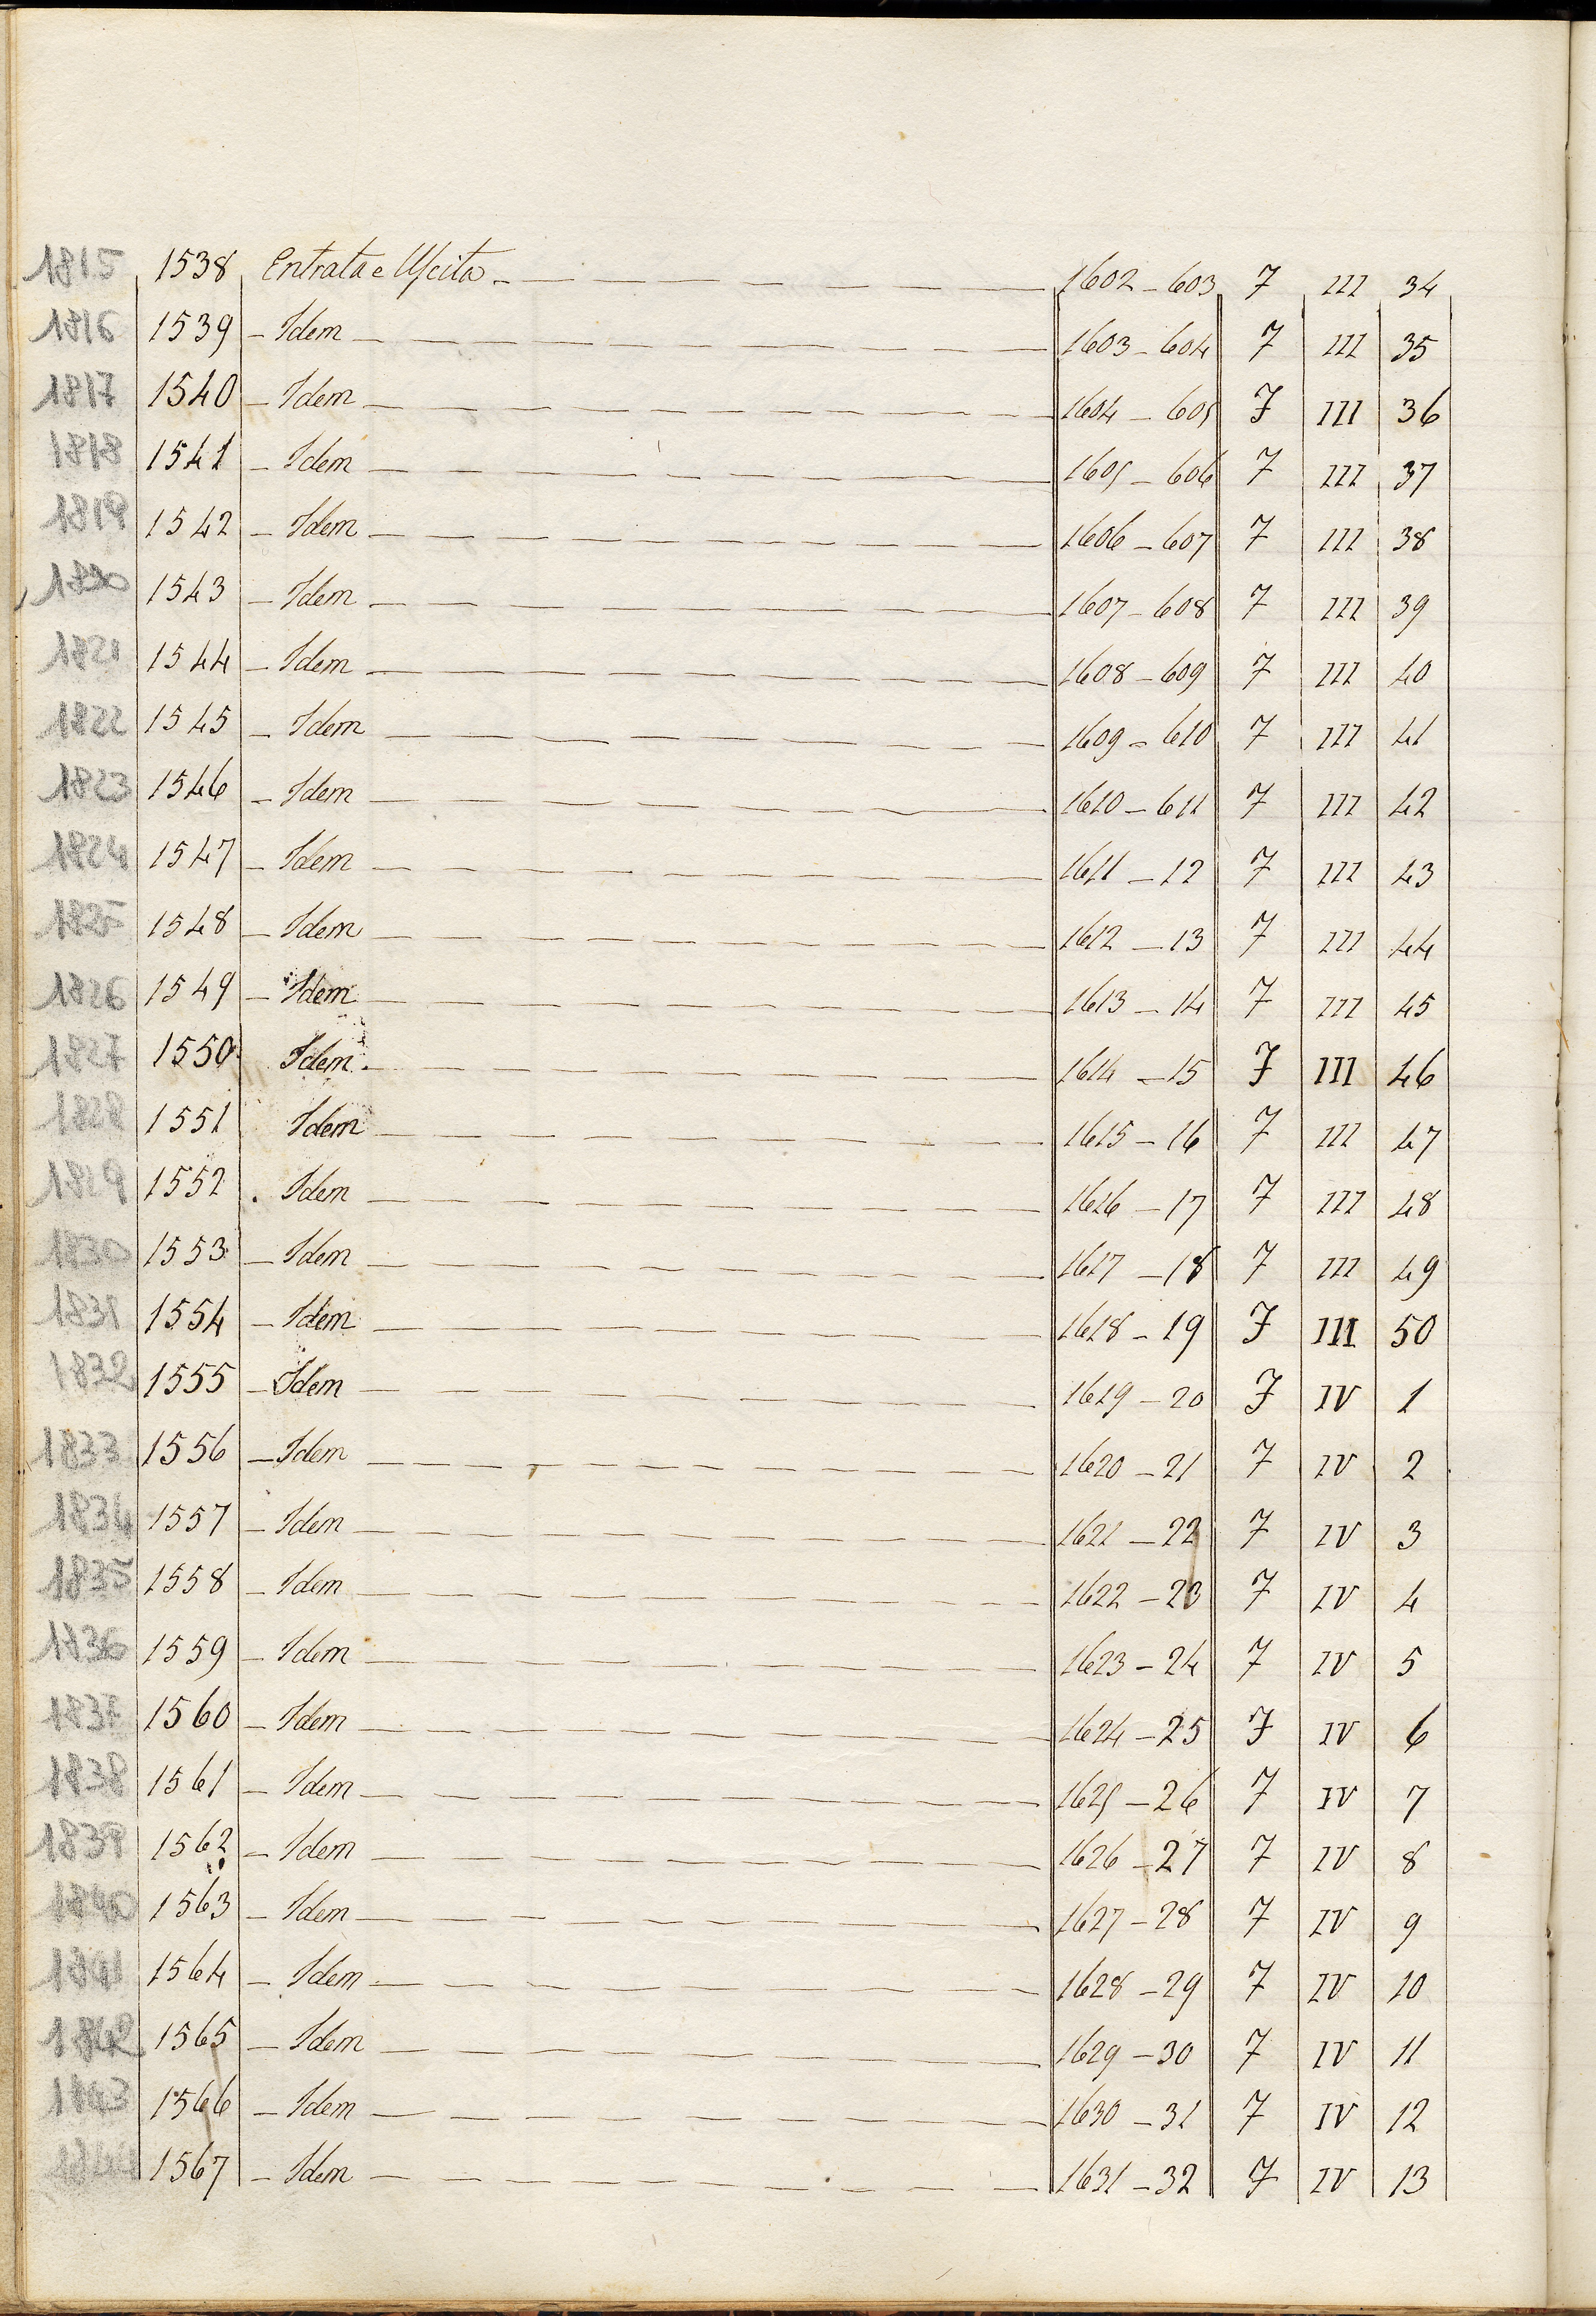 1815 1538 Entrata e Uscita 1602-603 7 III 34
1816 1539 - Idem 1603-604 7 III 35
1817 1540 - Idem 1604-605 7 III 36
1818 1541 - Idem 1605-606 7 III 37
1819 1542 - Idem 1606-607 7 III 38
1820 1543 - Idem 1607-608 7 III 39
1821 1544 - Idem 1608-609 7 III 40
1822 1545 - Idem 1609-610 7 III 41
1823 1546 - Idem 1610-611 7 III 42
1824 1547 - Idem 1611-12 7 III 43
1825 1548 - Idem 1612-13 7 III 44
1826 1549 - Idem 1613-14 7 III 45
1827 1550 Idem 1614-15 7 III 46
1828 1551 Idem 1615-16 7 III 47
1829 1552 . Idem 1616-17 7 III 48
1830 1553 - Idem 1617-18 7 III 49
1831 1554 - Idem 1618-19 7 III 50
1832 1555 - Idem 1619-20 7 IV 1
1833 1556 - Idem 1620-21 7 IV 2
1834 1557 - Idem 1621-22 7 IV 3
1835 1558 - Idem 1622-23 7 IV 4
1836 1559 - Idem 1623-24 7 IV 5
1837 1560 - Idem 1624-25 7 IV 6
1838 1561 - Idem 1625-26 7 IV 7
1839 1562 - Idem 1626-27 7 IV 8
1840 1563 - Idem 1627-28 7 IV 9
1841 1564 - Idem 1628-29 7 IV 10
1842 1565 - Idem 1629-30 7 IV 11
1843 1566 - Idem 1630-31 7 IV 12
1844 1567 - Idem 1631-32 7 IV 13